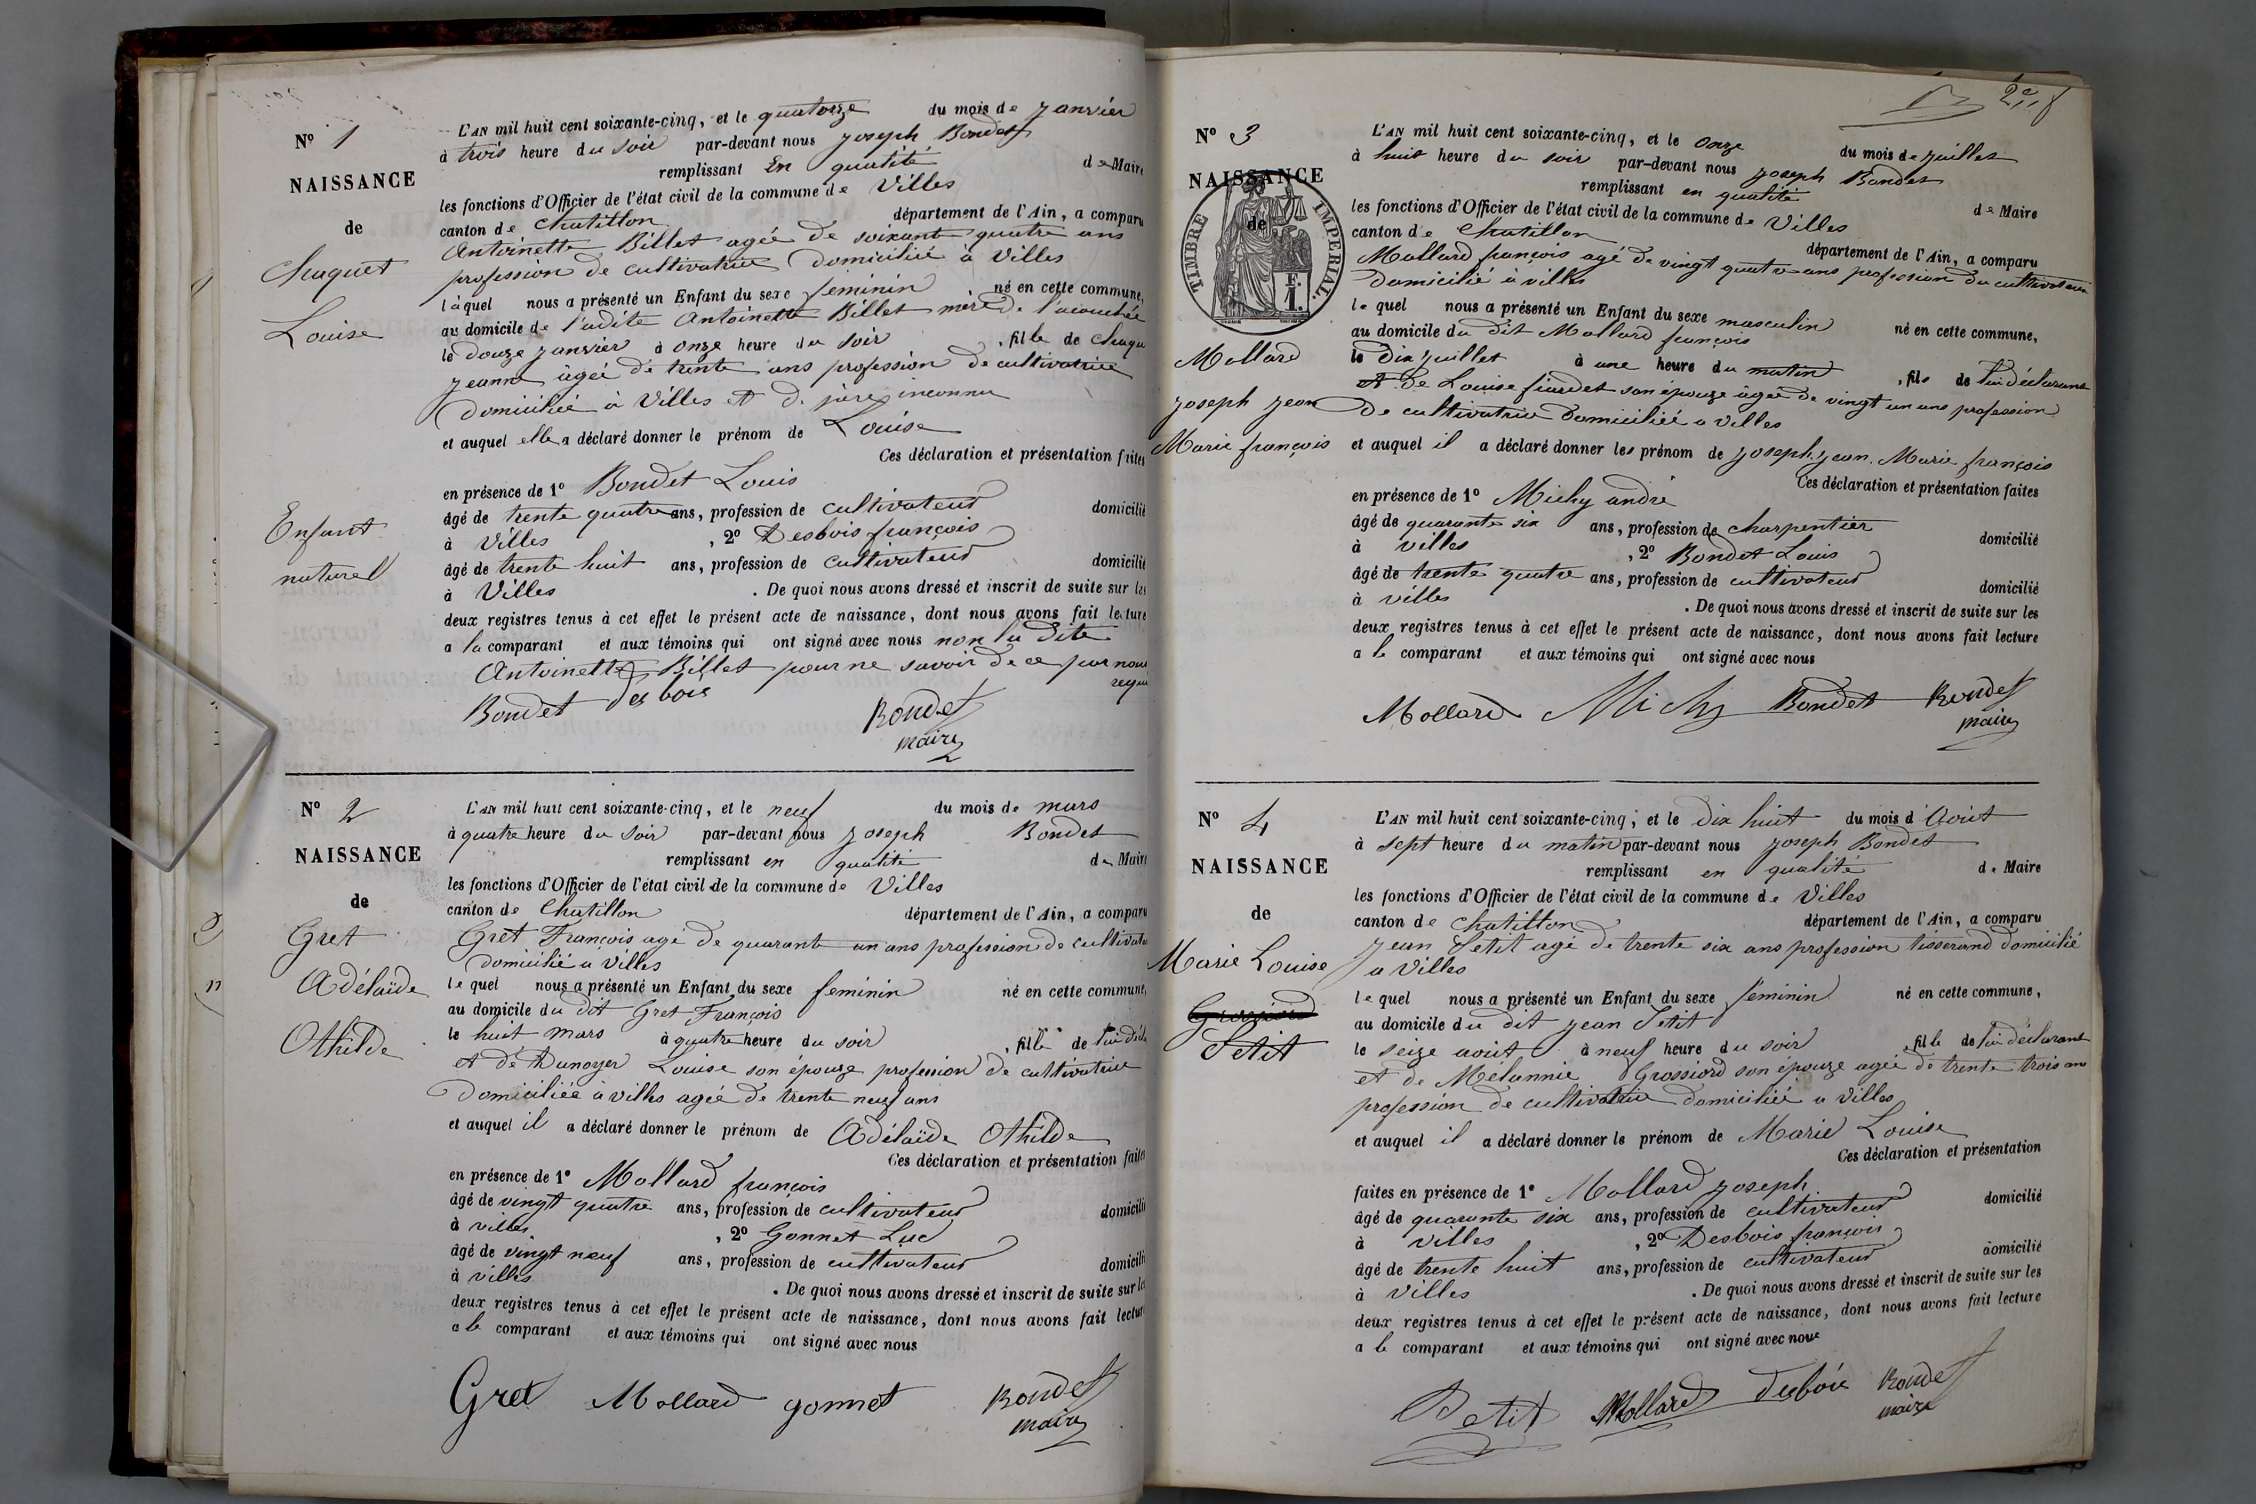 N° 1
NAISSANCE
de
Chaquet
Louise
Enfant
naturel
L'AN mil huit cent soixante-cinq, et le quatorze du mois de janvier
à trois heure du soir par-devant nous joseph Bondet
remplissant En qualité de Maire
les fonctions d'Officier de l'état civil de la commune de Villes
canton de Chatillon département de l'Ain, a comparu
Antoinette Billet agée de soixante quatre ans
profession de cultivatrice Domicilié à Villes
laquel nous a présenté un Enfant du sexe féminin né en cette commune,
au domicile de l'adite Antoinette Billet mère de l'acouchée
le douze janvier à onze heure du soir , fille de Chaqu
jeanne âgée de trente ans profession de cultivatrice
Domiciliée à Villes et de père inconnu
et auquel elle a déclaré donner le prénom de Louise
Ces déclaration et présentation faites
en présence de 1° Bondet Louis
âgé de trente quatre ans, profession de cultivateur domicilié
à Villes , 2° Desbois françois
âgé de trente huit ans, profession de cultivateur domicilié
à Villes . De quoi nous avons dressé et inscrit de suite sur les
deux registres tenus à cet effet le présent acte de naissance, dont nous avons fait lecture
a la comparant et aux témoins qui ont signé avec nous non la dite
Antoinette Billet pour ne savoir de ce par nous
requi
Bondet desbois Bondet
maire
N° 2
NAISSANCE
de
Gret
Adélaïde
Othilde
L'AN mil huit cent soixante-cinq, et le neuf du mois de mars
à quatre heure du soir par-devant nous joseph Bondet
remplissant en qualité de Maire
les fonctions d'Officier de l'état civil de la commune de Villes
canton de Chatillon département de l'Ain, a comparu
Gret François agé de quarante un ans profession de cultivate
domicilié a Villes
le quel nous a présenté un Enfant du sexe feminin né en cette commune,
au domicile du dit Gret François
le huit mars à quatre heure du soir , fille de lui décla
et de Dunoyer Louise son épouze profession de cultivatrice
Domiciliée à villes agée de trente neuf ans
et auquel il a déclaré donner le prénom de Adélaïde Othilde
Ces déclaration et présentation faites
en présence de 1° Mollard françois
âgé de vingt quatre ans, profession de cultivateur domicilié
à villes , 2° Gonnet Luc
âgé de vingt neuf ans, profession de cultivateur domicilié
à villes . De quoi nous avons dressé et inscrit de suite sur les
deux registres tenus à cet effet le présent acte de naissance, dont nous avons fait lecture
a le comparant et aux témoins qui ont signé avec nous
Gret Mollard gonnet Bondet
maire
N° 3
NAISSANCE
de
TIMBRE IMPERIAL.
F.
1.
Mollard
joseph jean
Marie françois
L'AN mil huit cent soixante-cinq, et le onze du mois de juillet
à huit heure du soir par-devant nous joseph Bondet
remplissant en qualité de Maire
les fonctions d'Officier de l'état civil de la commune de Villes
canton de Chatillon département de l'Ain, a comparu
Mollard françois agé de vingt quatre ans profession de cultivateur
domicilié à villes
le quel nous a présenté un Enfant du sexe masculin né en cette commune,
au domicile du dit Mollard françois
le dix juillet à une heure du matin , fils de lui déclarant
et de Louise son épouze agée de vingt un ans profession
de cultivatrice domiciliée a Villes
et auquel il a déclaré donner les prénom de joseph jean Marie françois
Ces déclaration et présentation faites
en présence de 1° Michy andré
âgé de quarante six ans, profession de charpentier domicilié
à villes , 2° Bondet Louis
âgé de trente quatre ans, profession de cultivateur domicilié
à villes . De quoi nous avons dressé et inscrit de suite sur les
deux registres tenus à cet effet le présent acte de naissance, dont nous avons fait lecture
a le comparant et aux témoins qui ont signé avec nous
Mollard Michy Bondet Bondet
maire
N° 4
NAISSANCE
de
Marie Louise
Grossiord
Petit
L'AN mil huit cent soixante-cinq, et le dix huit du mois d'Août
à sept heure du matin par-devant nous joseph Bondet
remplissant en qualité de Maire
les fonctions d'Officier de l'état civil de la commune de Villes
canton de Chatillon département de l'Ain, a comparu
jean Petit agé de trente six ans profession tisserand domicilié
a Villes
le quel nous a présenté un Enfant du sexe féminin né en cette commune,
au domicile du dit jean Petit
le seize août à neuf heure du soir , fille de lui déclarant
et de Mélannie Grossiord son épouze agée de trente trois ans
profession de cultivatrice domiciliée a Villes
et auquel il a déclaré donner le prénom de Marie Louise
Ces déclaration et présentation
faites en présence de 1° Mollard joseph
âgé de quarante six ans, profession de cultivateur domicilié
à villes , 2° Desbois françois
âgé de trente huit ans, profession de cultivateur domicilié
à Villes . De quoi nous avons dressé et inscrit de suite sur les
deux registres tenus à cet effet le présent acte de naissance, dont nous avons fait lecture
a le comparant et aux témoins qui ont signé avec nous
Petit Mollard desbois Bondet
maire